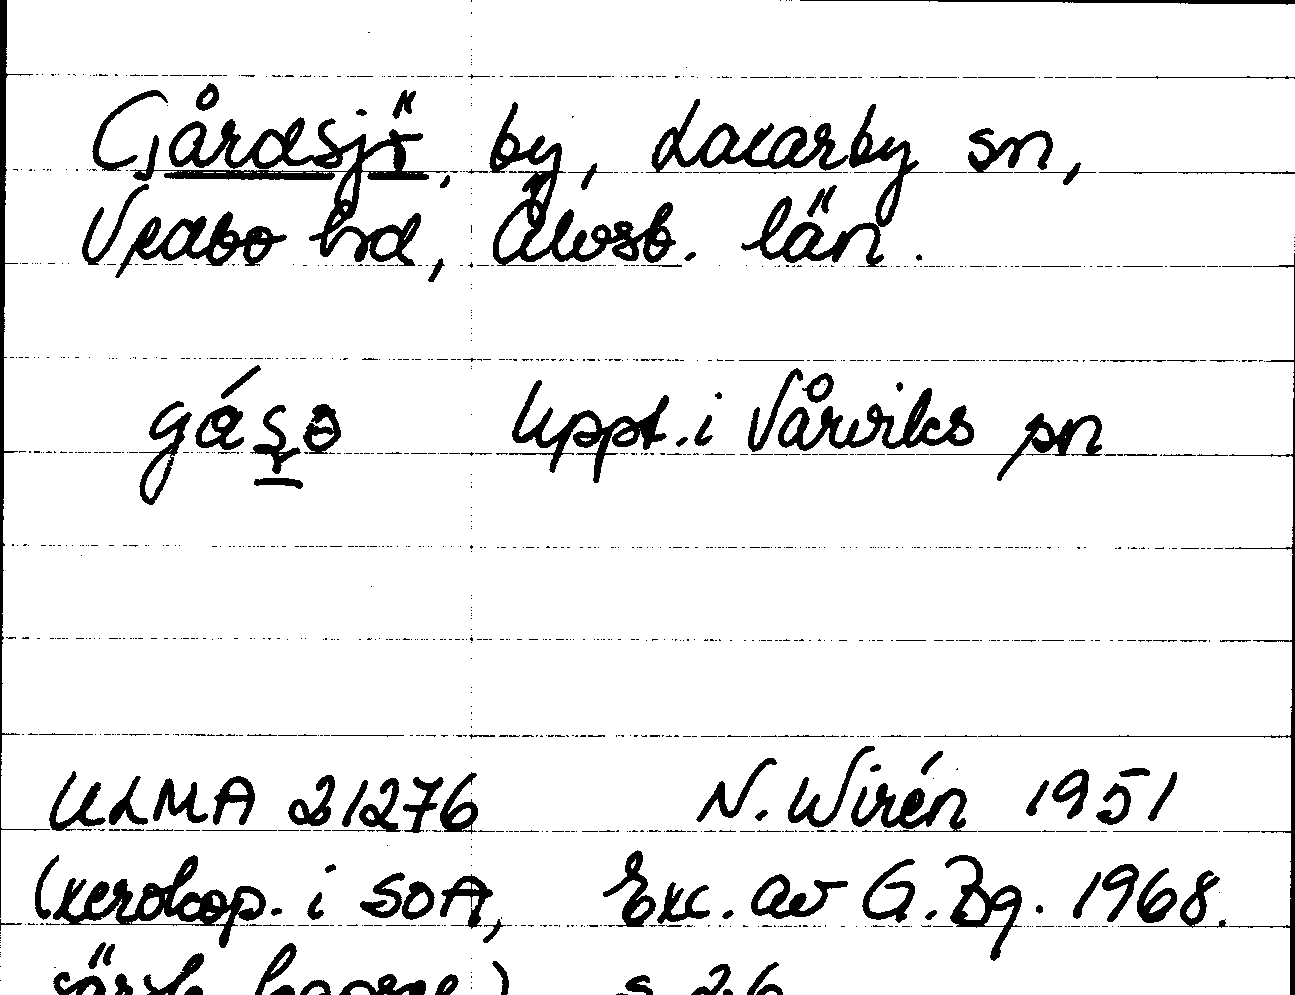 Gårdsjö, by, Lacarby sn,
Vedbo hd, Älvsb. län.
Uppt. i Vårviks sn
ULMA 21276 N. Wirén 1951
(xerokop. i SOA, Exc. av G. Bg. 1968.
särsk. kapsel) s. 26